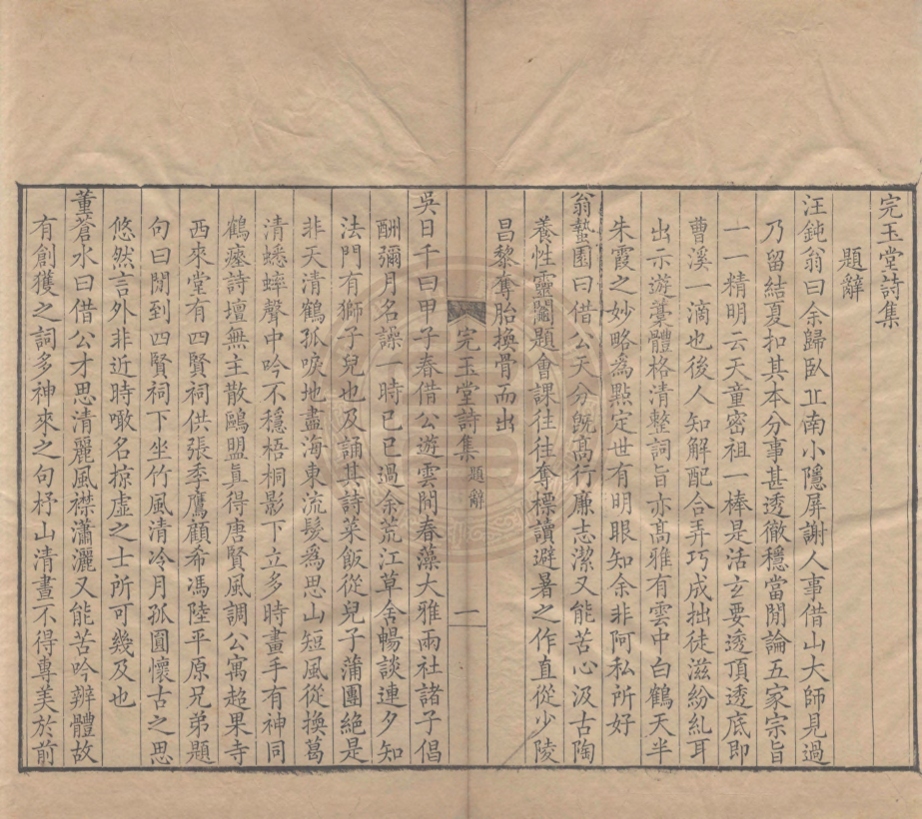 完玉堂詩集
題辭
汪鈍翁曰余歸臥丘南小隱屏謝人事借山大師見過
乃留結夏扣其本分事甚透徹穩當閒論五家宗旨
一一精明云天童密祖一棒是活玄要透頂透底即
曹溪一滴也後人知解配合弄巧成拙徒滋紛糺耳
出示遊藁體格清整詞旨亦高雅有雲中白鶴天半
朱霞之妙略爲點定世有明眼知余非阿私所好
翁蟄園曰借公天分旣高行廉志潔又能苦心汲古陶
養性靈闔題會課往往奪標讀避暑之作直從少陵
昌黎奪胎換骨而出
完玉堂詩集 題辭 一
吳日千曰甲子春借公遊雲閒春藻大雅兩社諸子倡
酬彌月名譟一時已巳過余荒江草舍暢談連夕知
法門有獅子兒也及誦其詩菜飯從兒子蒲團絶是
非天清鶴孤唳地盡海東流髮爲思山短風從換葛
清蟋蟀聲中吟不穩梧桐影下立多時畫手有神同
鶴瘗詩壇無主散鷗盟眞得唐賢風調公寓超果寺
西來堂有四賢祠供張季鷹顧希馮陸平原兄弟題
句曰閒到四賢祠下坐竹風清冷月孤圓懷古之思
悠然言外非近時噉名掠虛之士所可幾及也
董蒼水曰借公才思清麗風襟瀟灑又能苦吟辨體故
有創獲之詞多神來之句杼山清晝不得專美於前